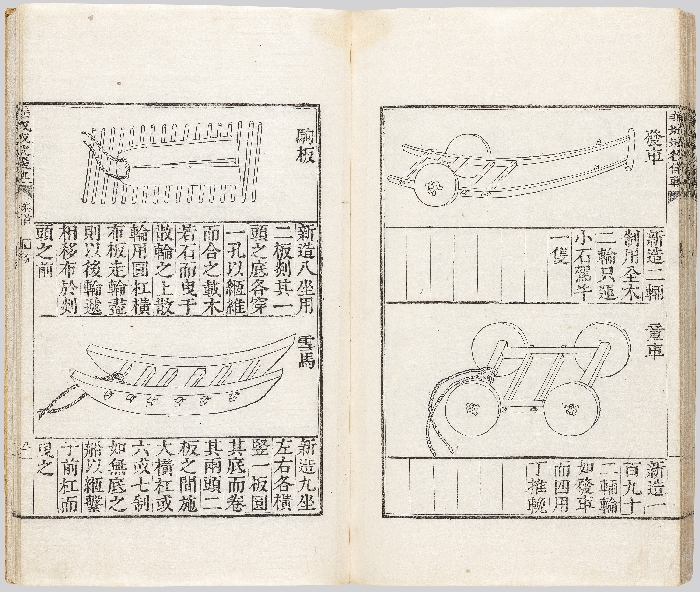 發車
新造二輛
制用全木
二輪只運
小石駕牛
一隻
童車
新造一
百九十
二輛輪
如發車
而四用
丁推輓
駒板
新造八坐用
二板剡其一
頭之底各穿
一孔以絙維
而合之載木
若石而曳于
散輪之上散
輪用圓杠橫
布板走輪盡
則以後輪遞
相移布於剡
頭之前
雪馬
新造九坐
左右各橫
竪一板圓
其底而卷
其兩頭二
板之間施
大橫杠或
六或七制
如無底之
船以絙繫
于前杠而
曳之